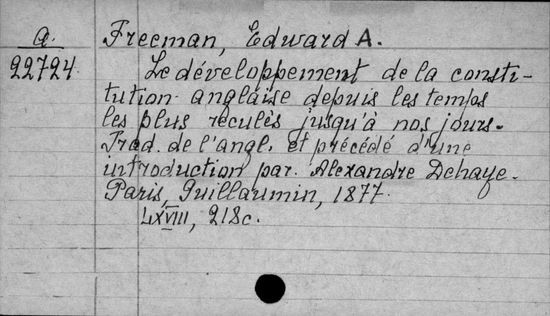 a.
22724.
Freeman, Edward A.
Le développement de la consti-
tution anglaise depuis les temps
les plus reculés jusqu'à nos jours.
Trad. de l'angl. et précédé d'une
introduction par. Alexandre Dehaye.
Paris, Guillaumin, 1877.
LXVIII, 218c.